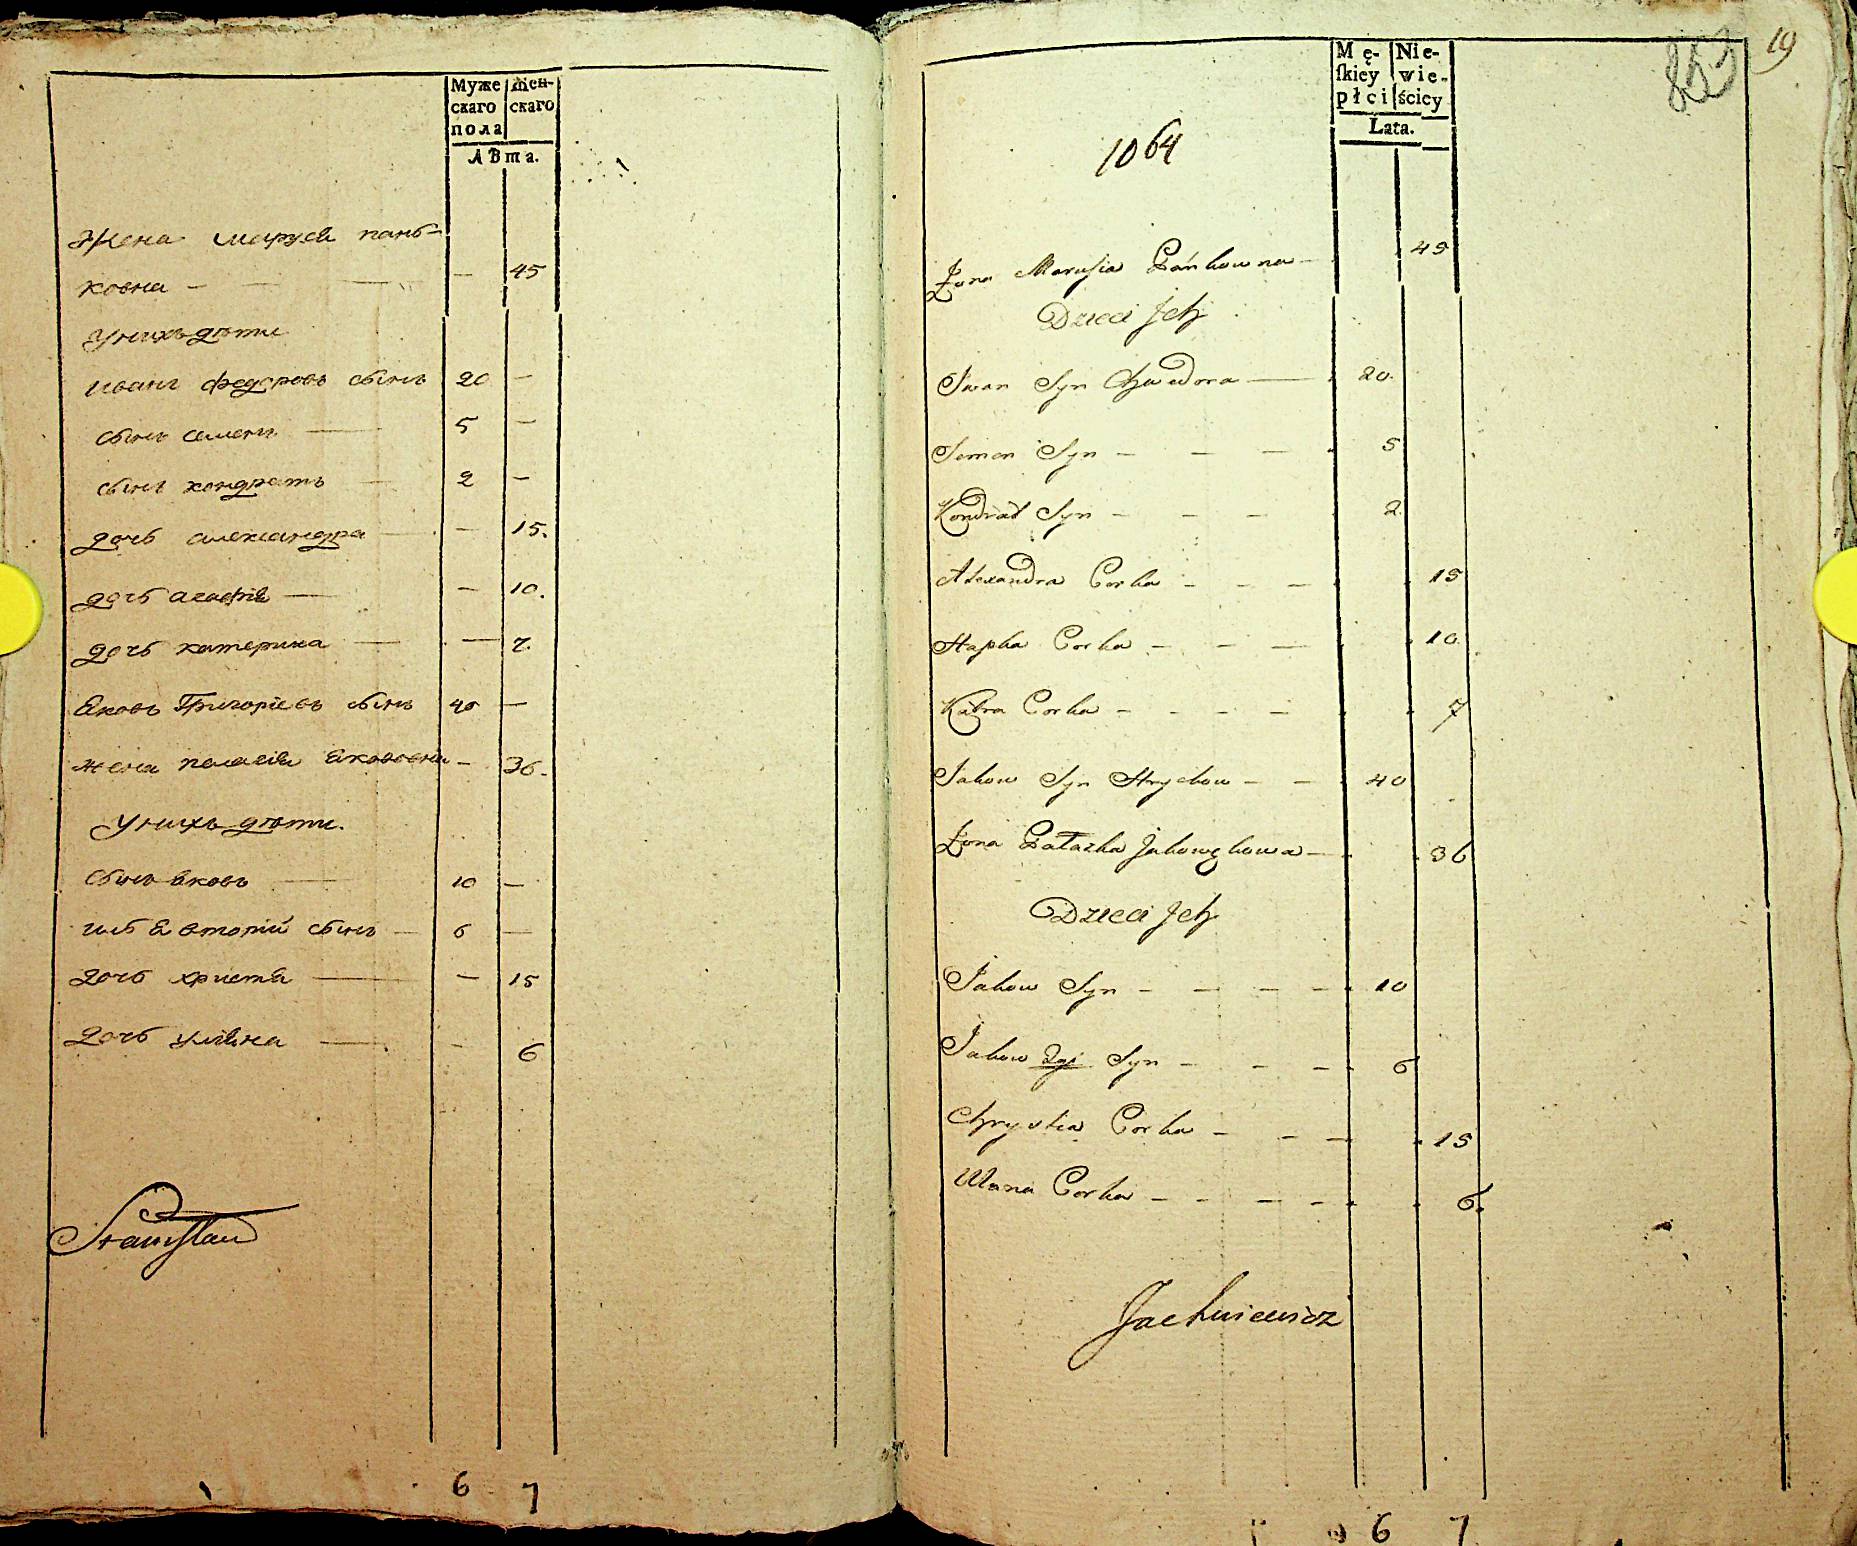 Муже
скаго
пола
Жен-
скаго
лѣта.
Жена Маруся пань-
ковна — 45
Унихъ дѣти
Иванъ федоровъ сынъ 20 —
сынъ семенъ — 5 —
сынъ кондратъ — 2 —
дочь александра — — 15.
дочь агафія — — 10.
дочь катерина — — 7.
Яковъ Григоріевъ сынъ 40 —
жена палагія якововна — 36.
Унихъ дѣти.
сынъ яковъ — 10 —
яковъ вторій сынъ — 6 —
дочь христя — — 15
дочь уліяна — — 6
Stanisław
6 7
19
Mę-
skiey
płci
Nie-
wie-
ściey
Lata.
1064
Żona Marusia Pańkowna — 45
Dzieci Jch
Iwan Syn Chwedora — 20.
Semen Syn — — — 5
Kondrat Syn — — — 2
Alexandra Corka — — — 15
Hapka Corka — — — 10
Katra Corka — — — — 7
Jakow Syn Hrychow — — 40
Żona Pałazka Jakowękowa — 36
Dzieci Jch
Jakow Syn — — — — 10
Jakow 2gi Syn — — — 6
Chrystia Corka — — — 15
Ulana Corka — — — — 6.
Jachniewicz
6 7